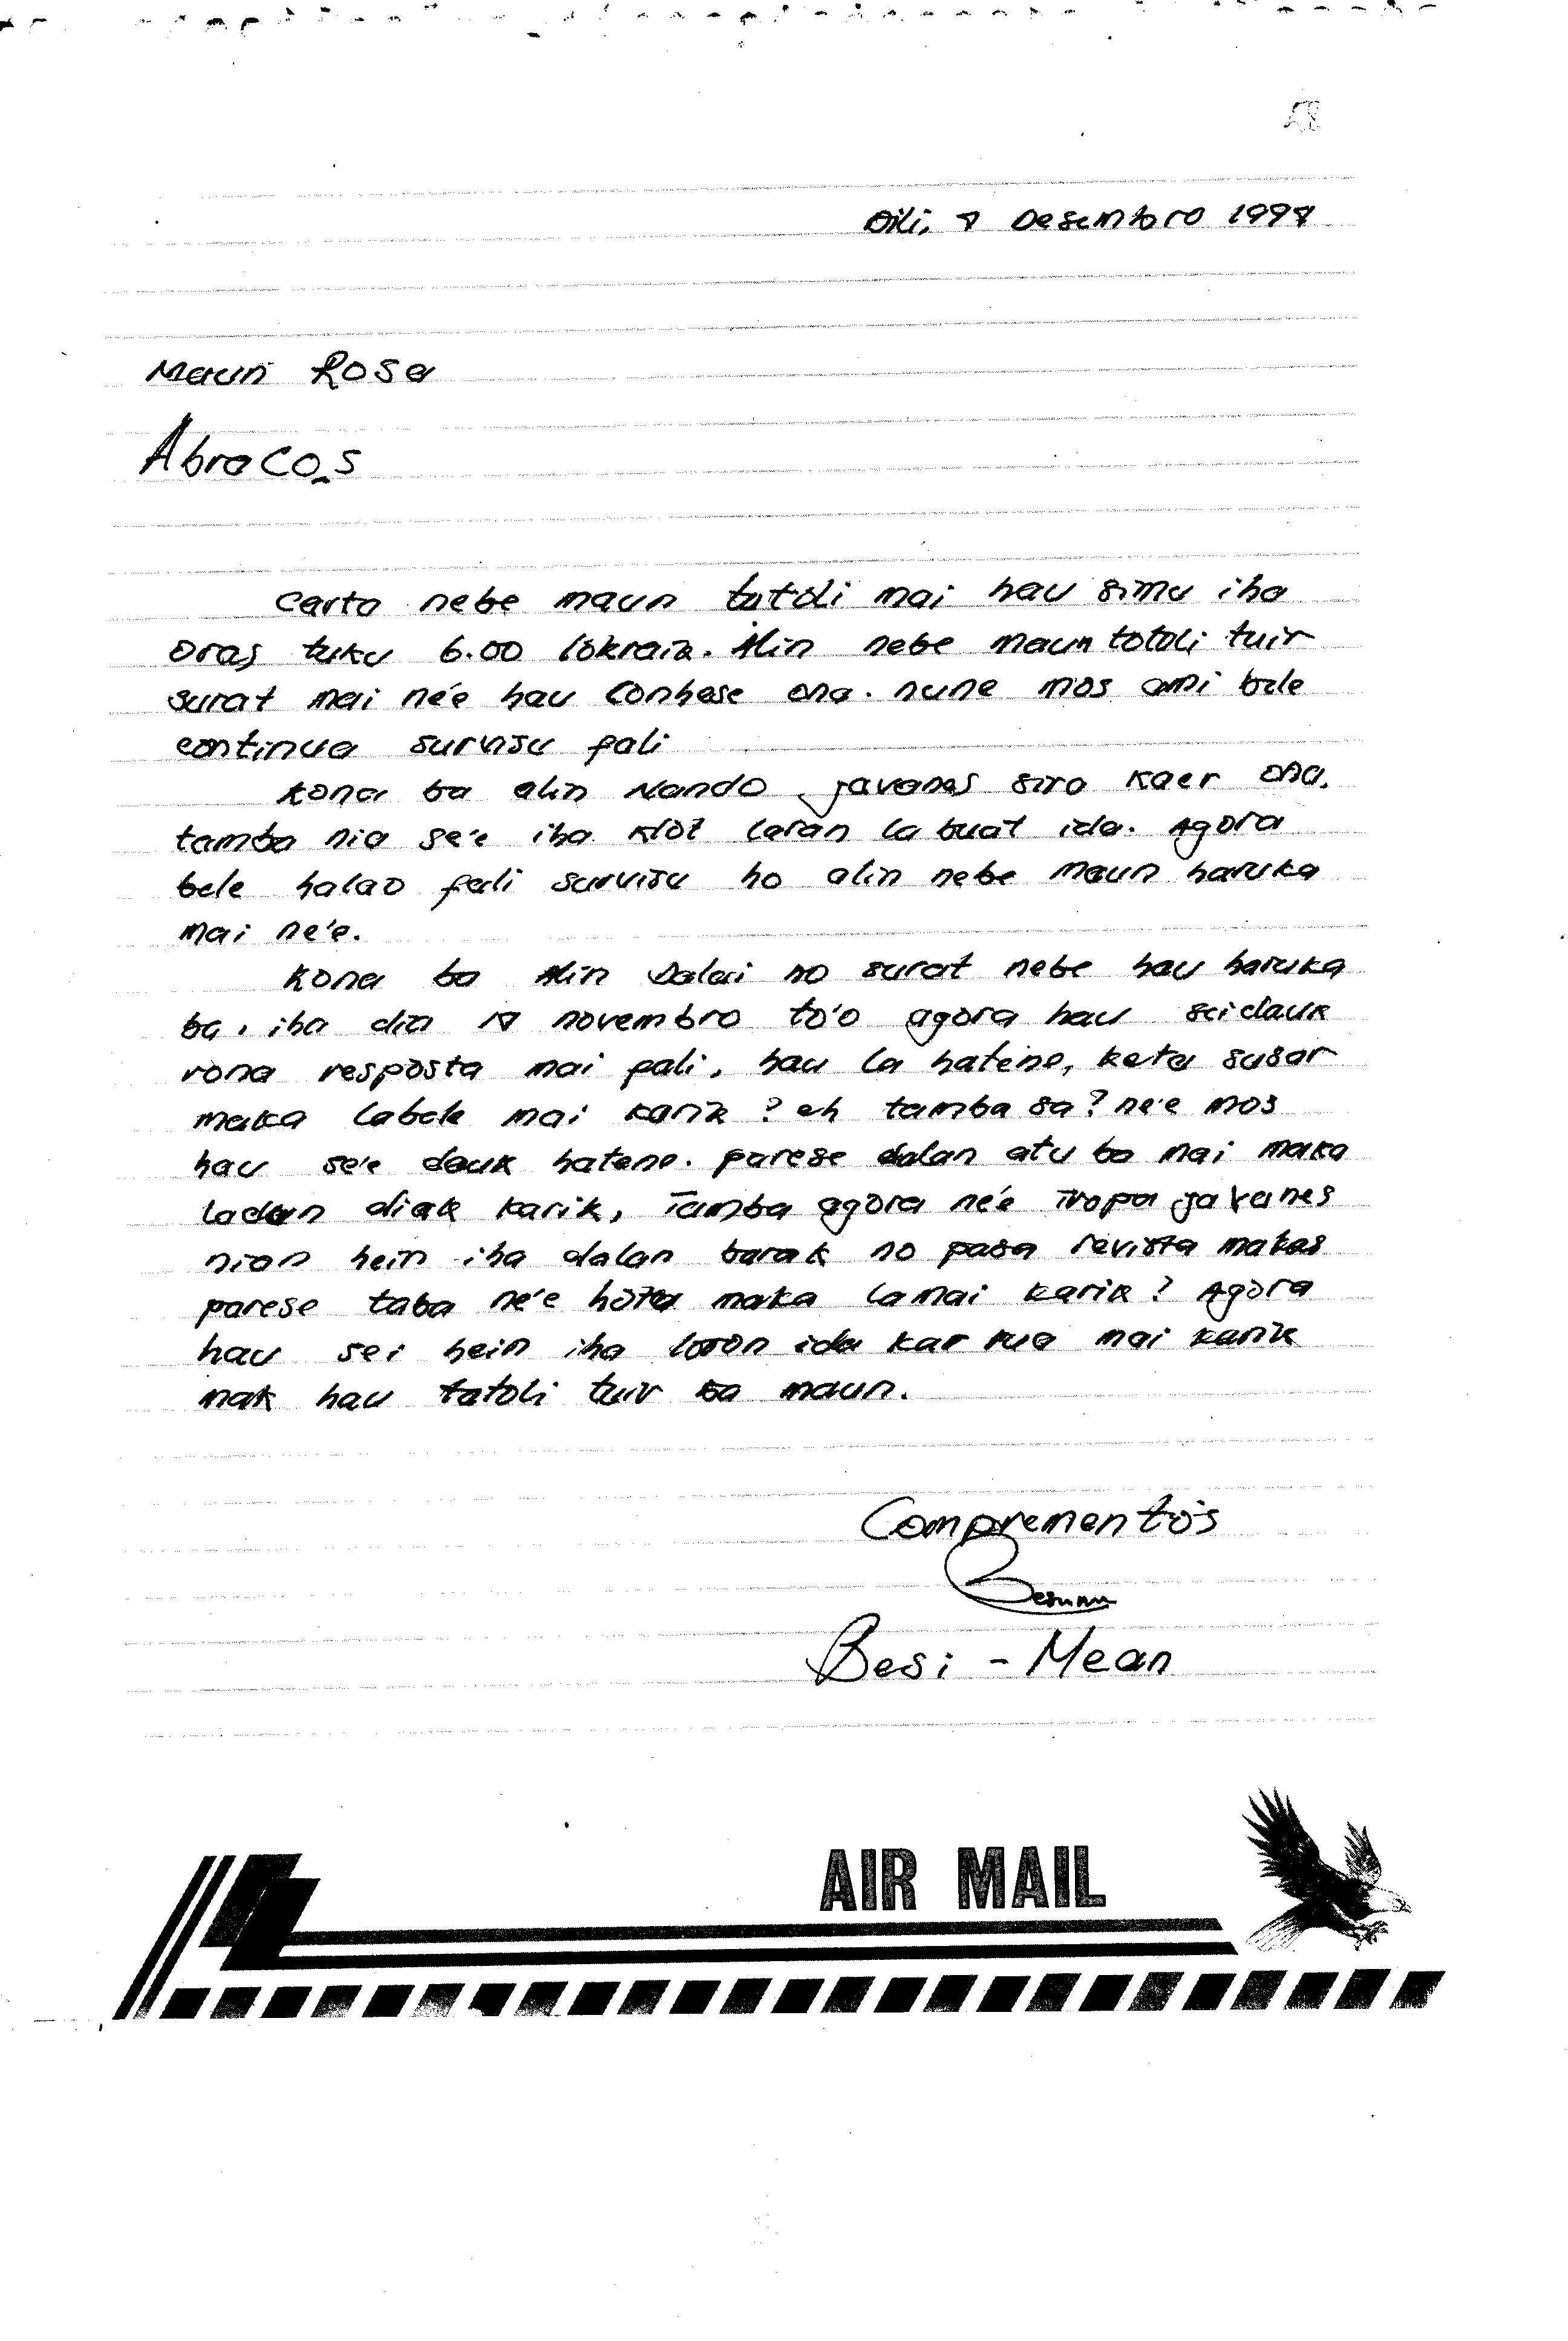 Dili, 7 Desembro 1997
Maun Rosa
Abraços
Carta nebe maun tatoli mai hau simu iha
oras tuku 6.00 lokraik. Alin nebe maun totoli tuir
surat mai né'e hau Conhese ona. nune mos ami bele
continua survisu fali
Kona ba alin Nando, javanes siro kaer ona.
tamba nia se'e iha klot laran la buat ida. Agora
bele halao fali survisu ho alin nebe Maun haruka
mai ne'e.
Kona ba Alin no surat nebe hau haruka
ba, iha dia 17 novembro to'o agora hau seidauk
rona resposta mai fali, hau la hatene, keta susar
maka labele mai karik? eh tamba sa? ne'e mos
hau se'e dauk hatene. parese dalan atu ba mai maka
ladun diak karik, Tamba agora né'e Tropa javanes
nian hein iha dalan barak no pasa revista makas
parese taba ne'e hotu maka lamai karik? Agora
hau sei hein iha loron ida kar rua mai karik
mak hau tatoli tuir ba maun.
Comprementos
Besi - Mean
AIR MAIL